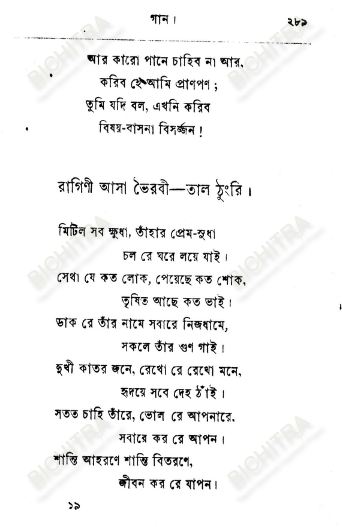 গান ।
২৮৯
আর কারো পানে চাহিব না আর,
করিব হে আমি প্রাণপণ ;
তুমি যদি বল, এখনি করিব
বিষয়-বাসনা বিসর্জ্জন !
রাগিণী আসা ভৈরবী—তাল ঠুংরি ।
মিটিল সব ক্ষুধা, তাঁহার প্রেম-সুধা
চল রে ঘরে লয়ে যাই ।
সেথা যে কত লোক, পেয়েছে কত শোক,
তৃষিত আছে কত ভাই ।
ডাক রে তাঁর নামে সবারে নিজধামে,
সকলে তাঁর গুণ গাই ।
দুখী কাতর জনে, রেখো রে রেখো মনে,
হৃদয়ে সবে দেহ ঠাঁই ।
সতত চাহি তাঁরে, ভোল রে আপনারে,
সবারে কর রে আপন ।
শান্তি আহরণে শান্তি বিতরণে,
জীবন কর রে যাপন ।
১৯
BICHITRA
BICHITRA
BICHITRA
BICHITRA
BICHITRA
BICHITRA
BICHITRA
BICHITRA